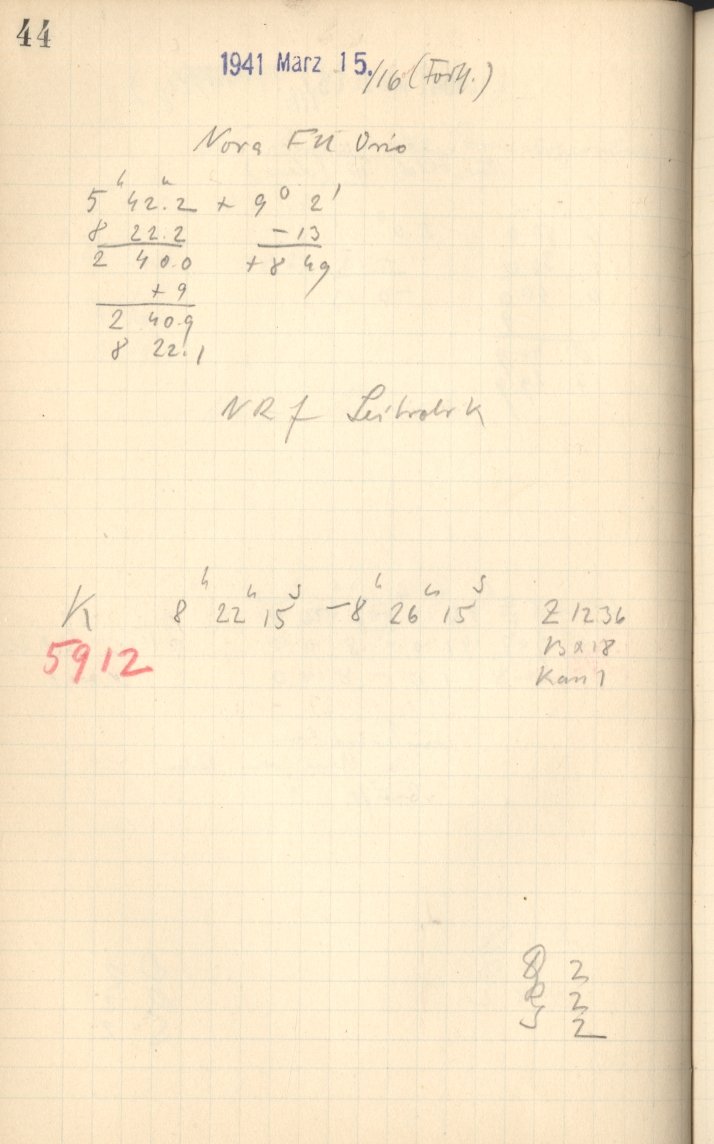 44
1941 März 15./16 (Forts.)
Nova FU Orio
5ʰ 42ᵐ.2 + 9° 2'
8 22.2 - 13
2 40.0 + 8 49
+ 9
2 40.9
8 22.1
NR f Leitrohr K
K 8ʰ 22ᵐ 15ˢ - 8ʰ 26ᵐ 15ˢ Z 1236
5912 B x 18
Kan 1
2
2
S 2